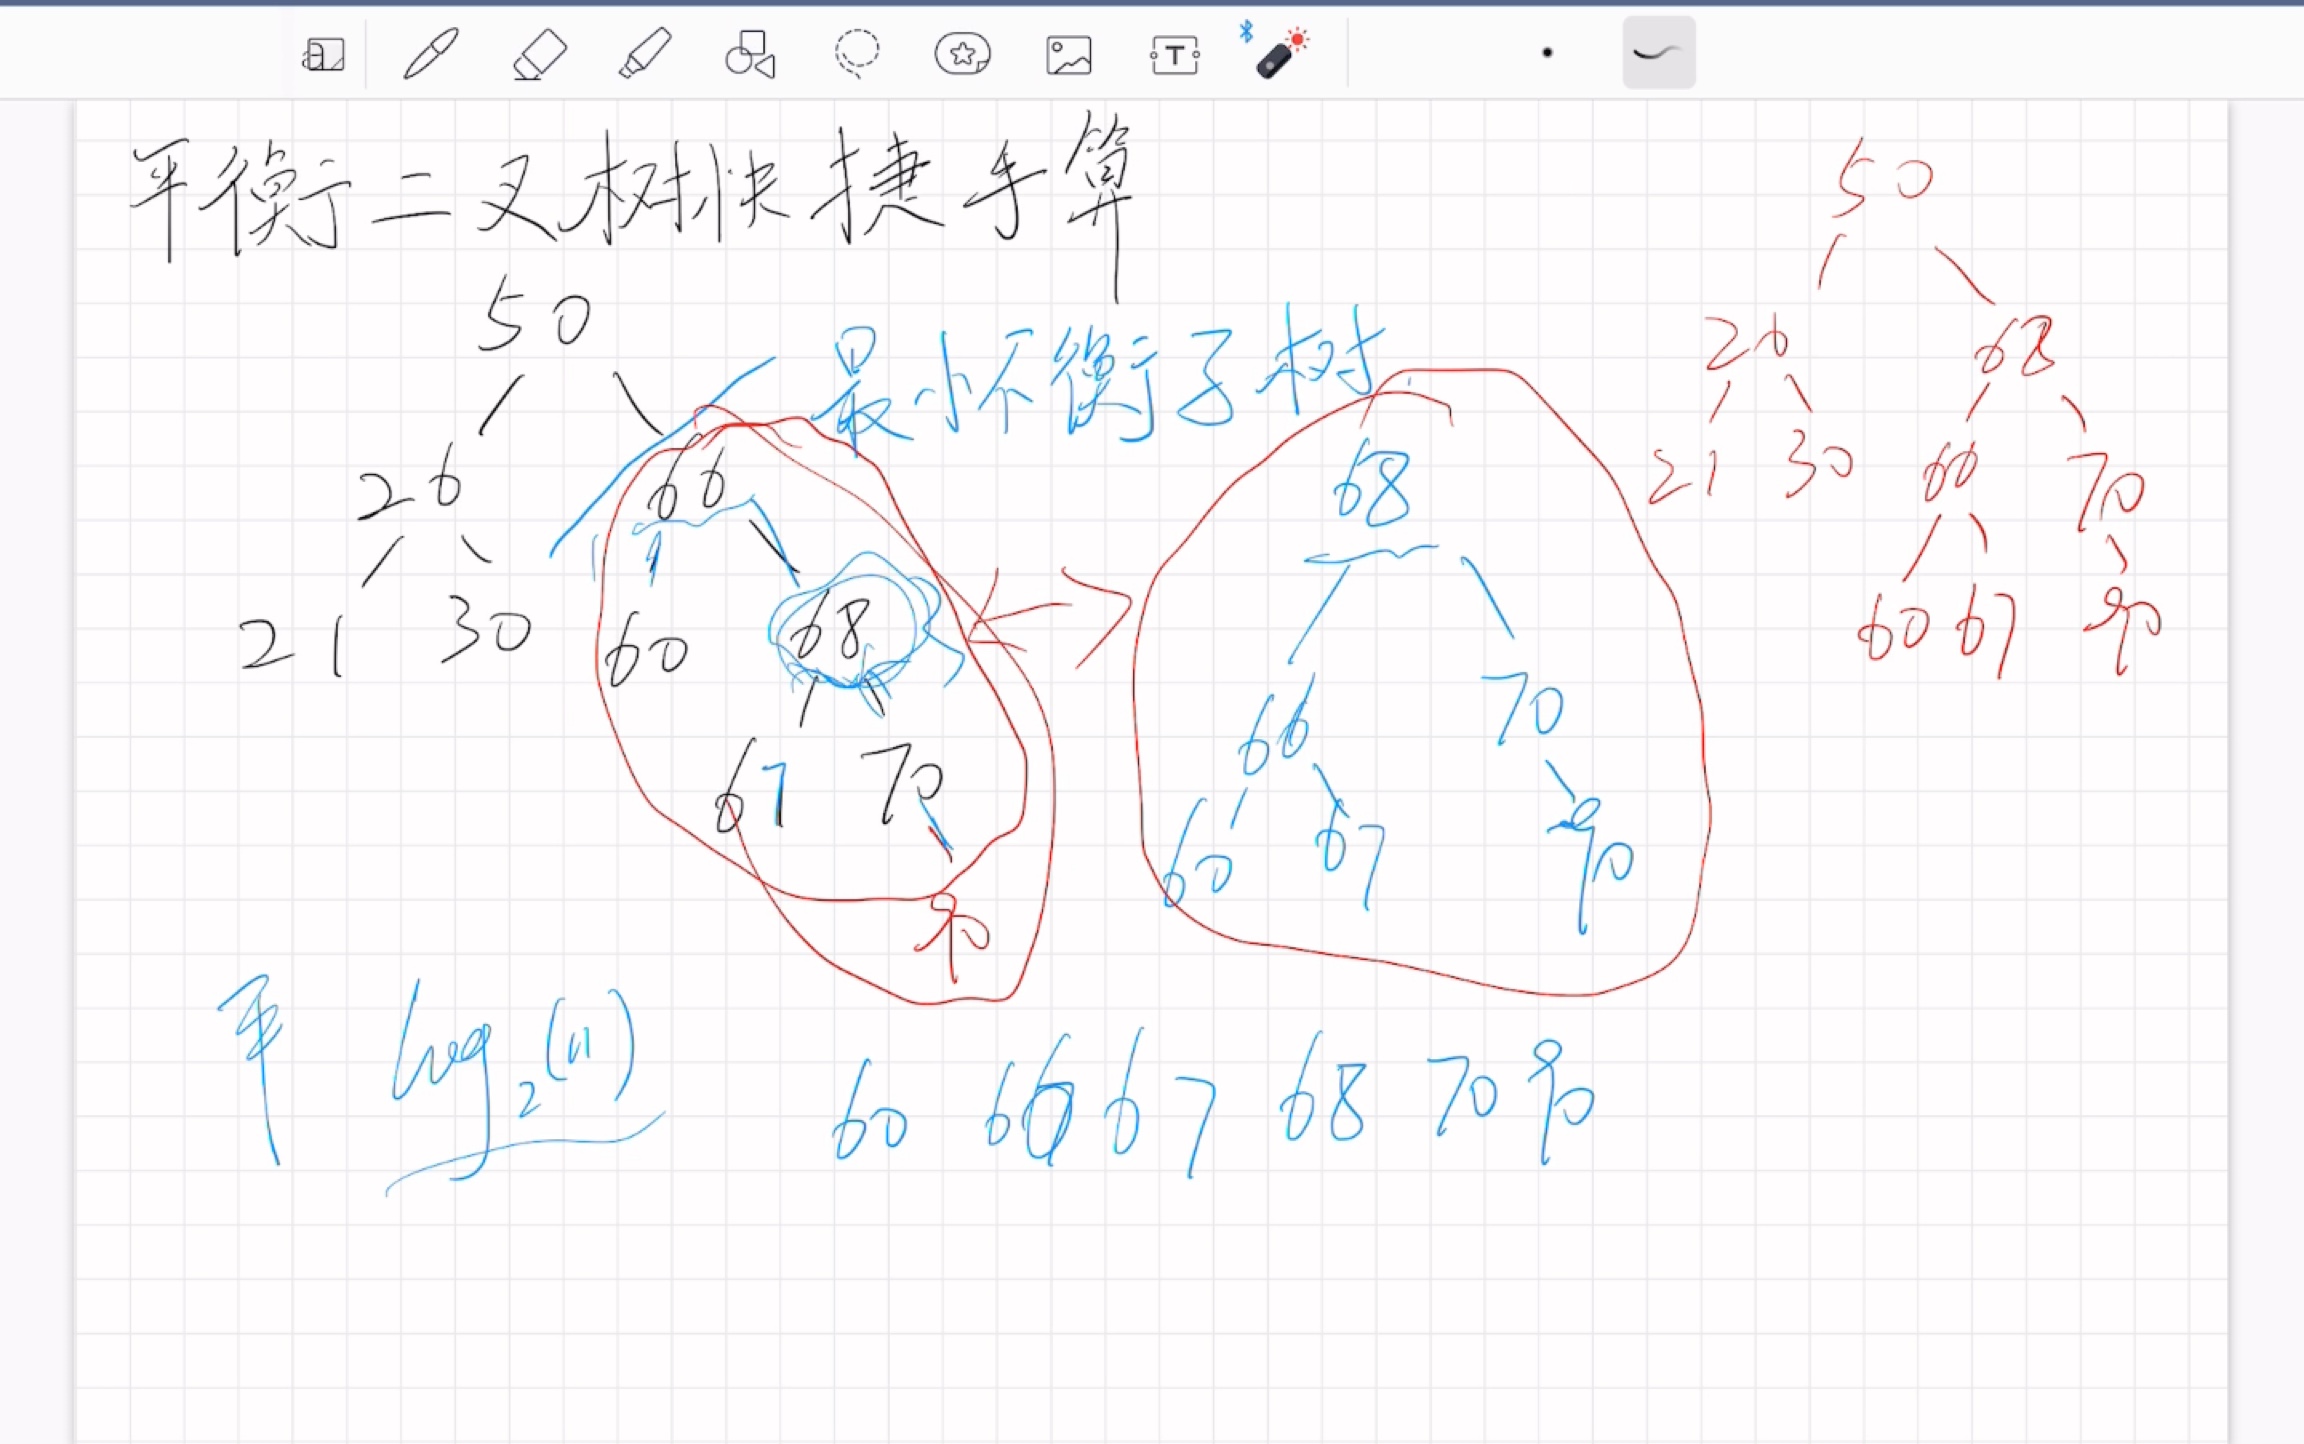 平衡二叉树快捷手算
50
26 66
21 30 60 68
67 70
90
最小不衡子树
68
66 70
60 67 90
50
26 68
21 30 66 70
60 67 90
平 log2(n)
60 66 67 68 70 90